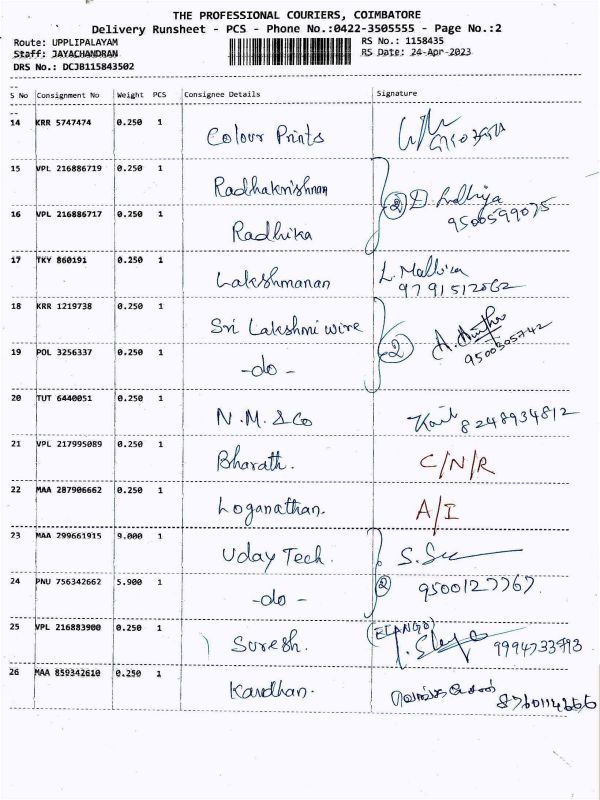 THE PROFESSIONAL COURIERS, COIMBATORE
Delivery Runsheet - PCS - Phone No.:0422-3505555 - Page No.:2
Route: UPPLIPALAYAM RS No.: 1158435
Staff: JAYACHANDRAN RS Date: 24-Apr-2023
DRS No.: DCJB115843502
S No Consignment No Weight PCS Consignee Details Signature
14 KRR 5747474 0.250 1 Colour Prints
15 VPL 216886719 0.250 1 Radhakrishnan
16 VPL 216886717 0.250 1 Radhika ② 9500599075
17 TKY 860191 0.250 1 Lakshmanan L. Mallika
9791512062
18 KRR 1219738 0.250 1 Sri Lakshmi wire
19 POL 3256337 0.250 1 -do- ② 9500305742
20 TUT 6440051 0.250 1 N.M. & Co 8248934812
21 VPL 217995089 0.250 1 Bharath. C/N/R
22 MAA 287906662 0.250 1 Loganathan. A/I
23 MAA 299661915 9.000 1 Uday Tech.
24 PNU 756342662 5.900 1 -do- ② 9500127767.
25 VPL 216883900 0.250 1 Suresh. (ELANGO) 9994733793
26 MAA 859342610 0.250 1 Kandhan.